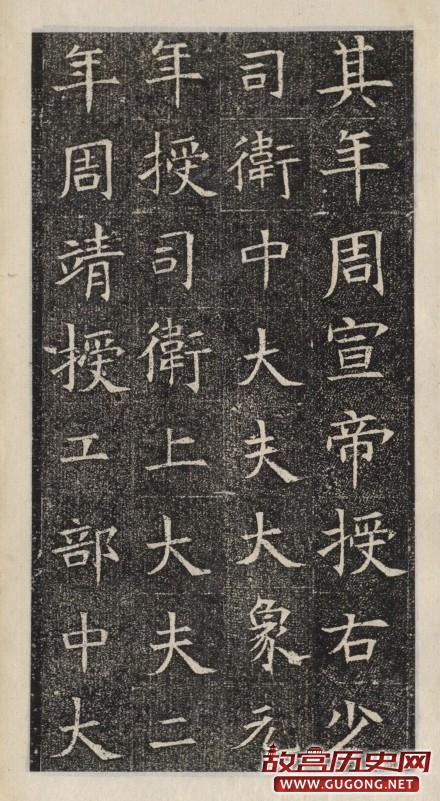 其年周宣帝授右少
司衛中大夫大象元
年授司衛上大夫二
年周靖授工部中大
故宫历史网
www.GUGONG.NET